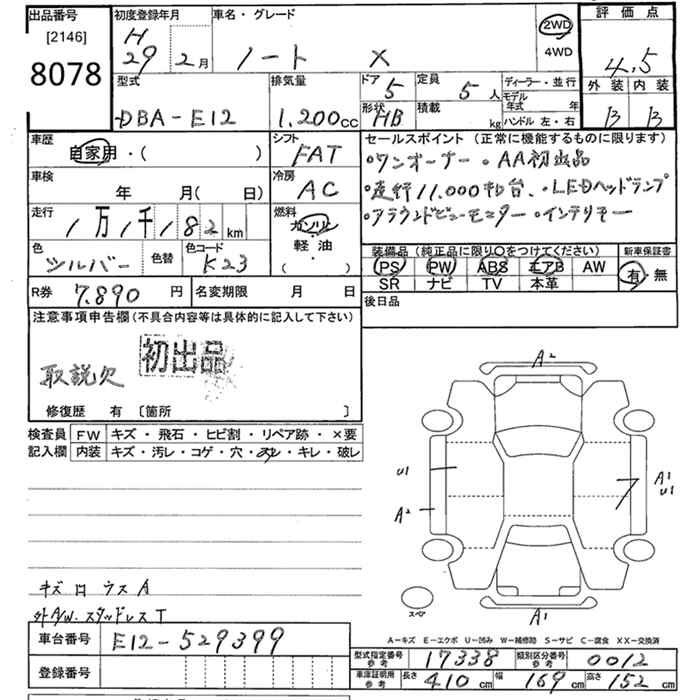 出品番号 [2146] 8078
初度登録年月 H 29年 2月
車名・グレード ノート X
2WD 4WD
評価点 4.5
外装 内装
B B
型式 DBA-E12
排気量 1,200cc
ドア 5 定員 5人
形状 HB 積載 kg
ディーラー・並行
モデル年式 年
ハンドル 左・右
車歴 自家用・( )
シフト FAT
車検 年 月( 日)
冷房 AC
走行 1万1千182km
燃料 ガソリン 軽油・( )
色 シルバー 色替 色コード K23
セールスポイント (正常に機能するものに限ります)
・ワンオーナー ・AA初出品
・走行11,000キロ台 ・LEDヘッドランプ
・アラウンドビューモニター ・インテリキー
装備品 (純正品に限り○をつけてください) 新車保証書
PS PW ABS エアB AW 有・無
SR ナビ TV 本革
R券 7.890円 名変期限 月 日
後日品
注意事項申告欄 (不具合内容等は具体的に記入して下さい)
初出品
取説欠
修復歴 有 [箇所 ]
検査員 FW キズ・飛石・ヒビ割・リペア跡・×要
記入欄 内装 キズ・汚レ・コゲ・穴・スレ・キレ・破レ
A2
U1
A2
A1
U1
スペア
A1
キズロ ウスA
外A/W.スタッドレスT
A-キズ E-エクボ U-凹み W-補修跡 S-サビ C-腐食 XX-交換済
車台番号 E12-529399
登録番号
型式指定番号 参考 17338 類別区分番号 参考 0012
車庫証明用 参考 長さ 410cm 幅 169cm 高さ 152cm